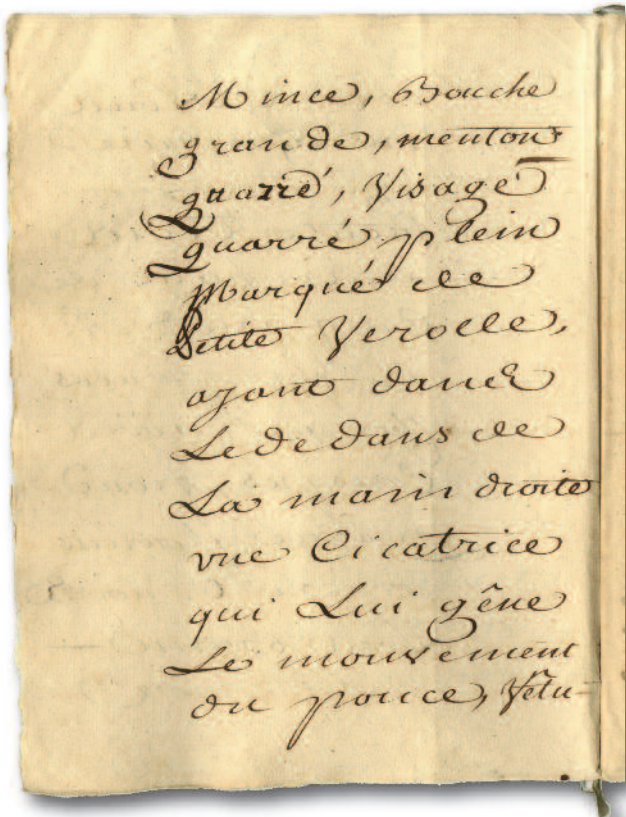 Mince, Bouche
grande, menton
quarré, Visage
quarré plein
Marqué de
Petite Verolle,
ayant dans
Le dedans de
La main droite
une Cicatrice
qui Lui gêne
Le mouvement
du pouce, Vêtu-